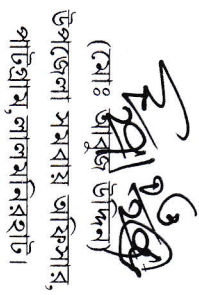 (মোঃ তাবুজ উদ্দিন)
উপজেলা সমবায় অফিসার,
পাটগ্রাম,লালমনিরহাট।